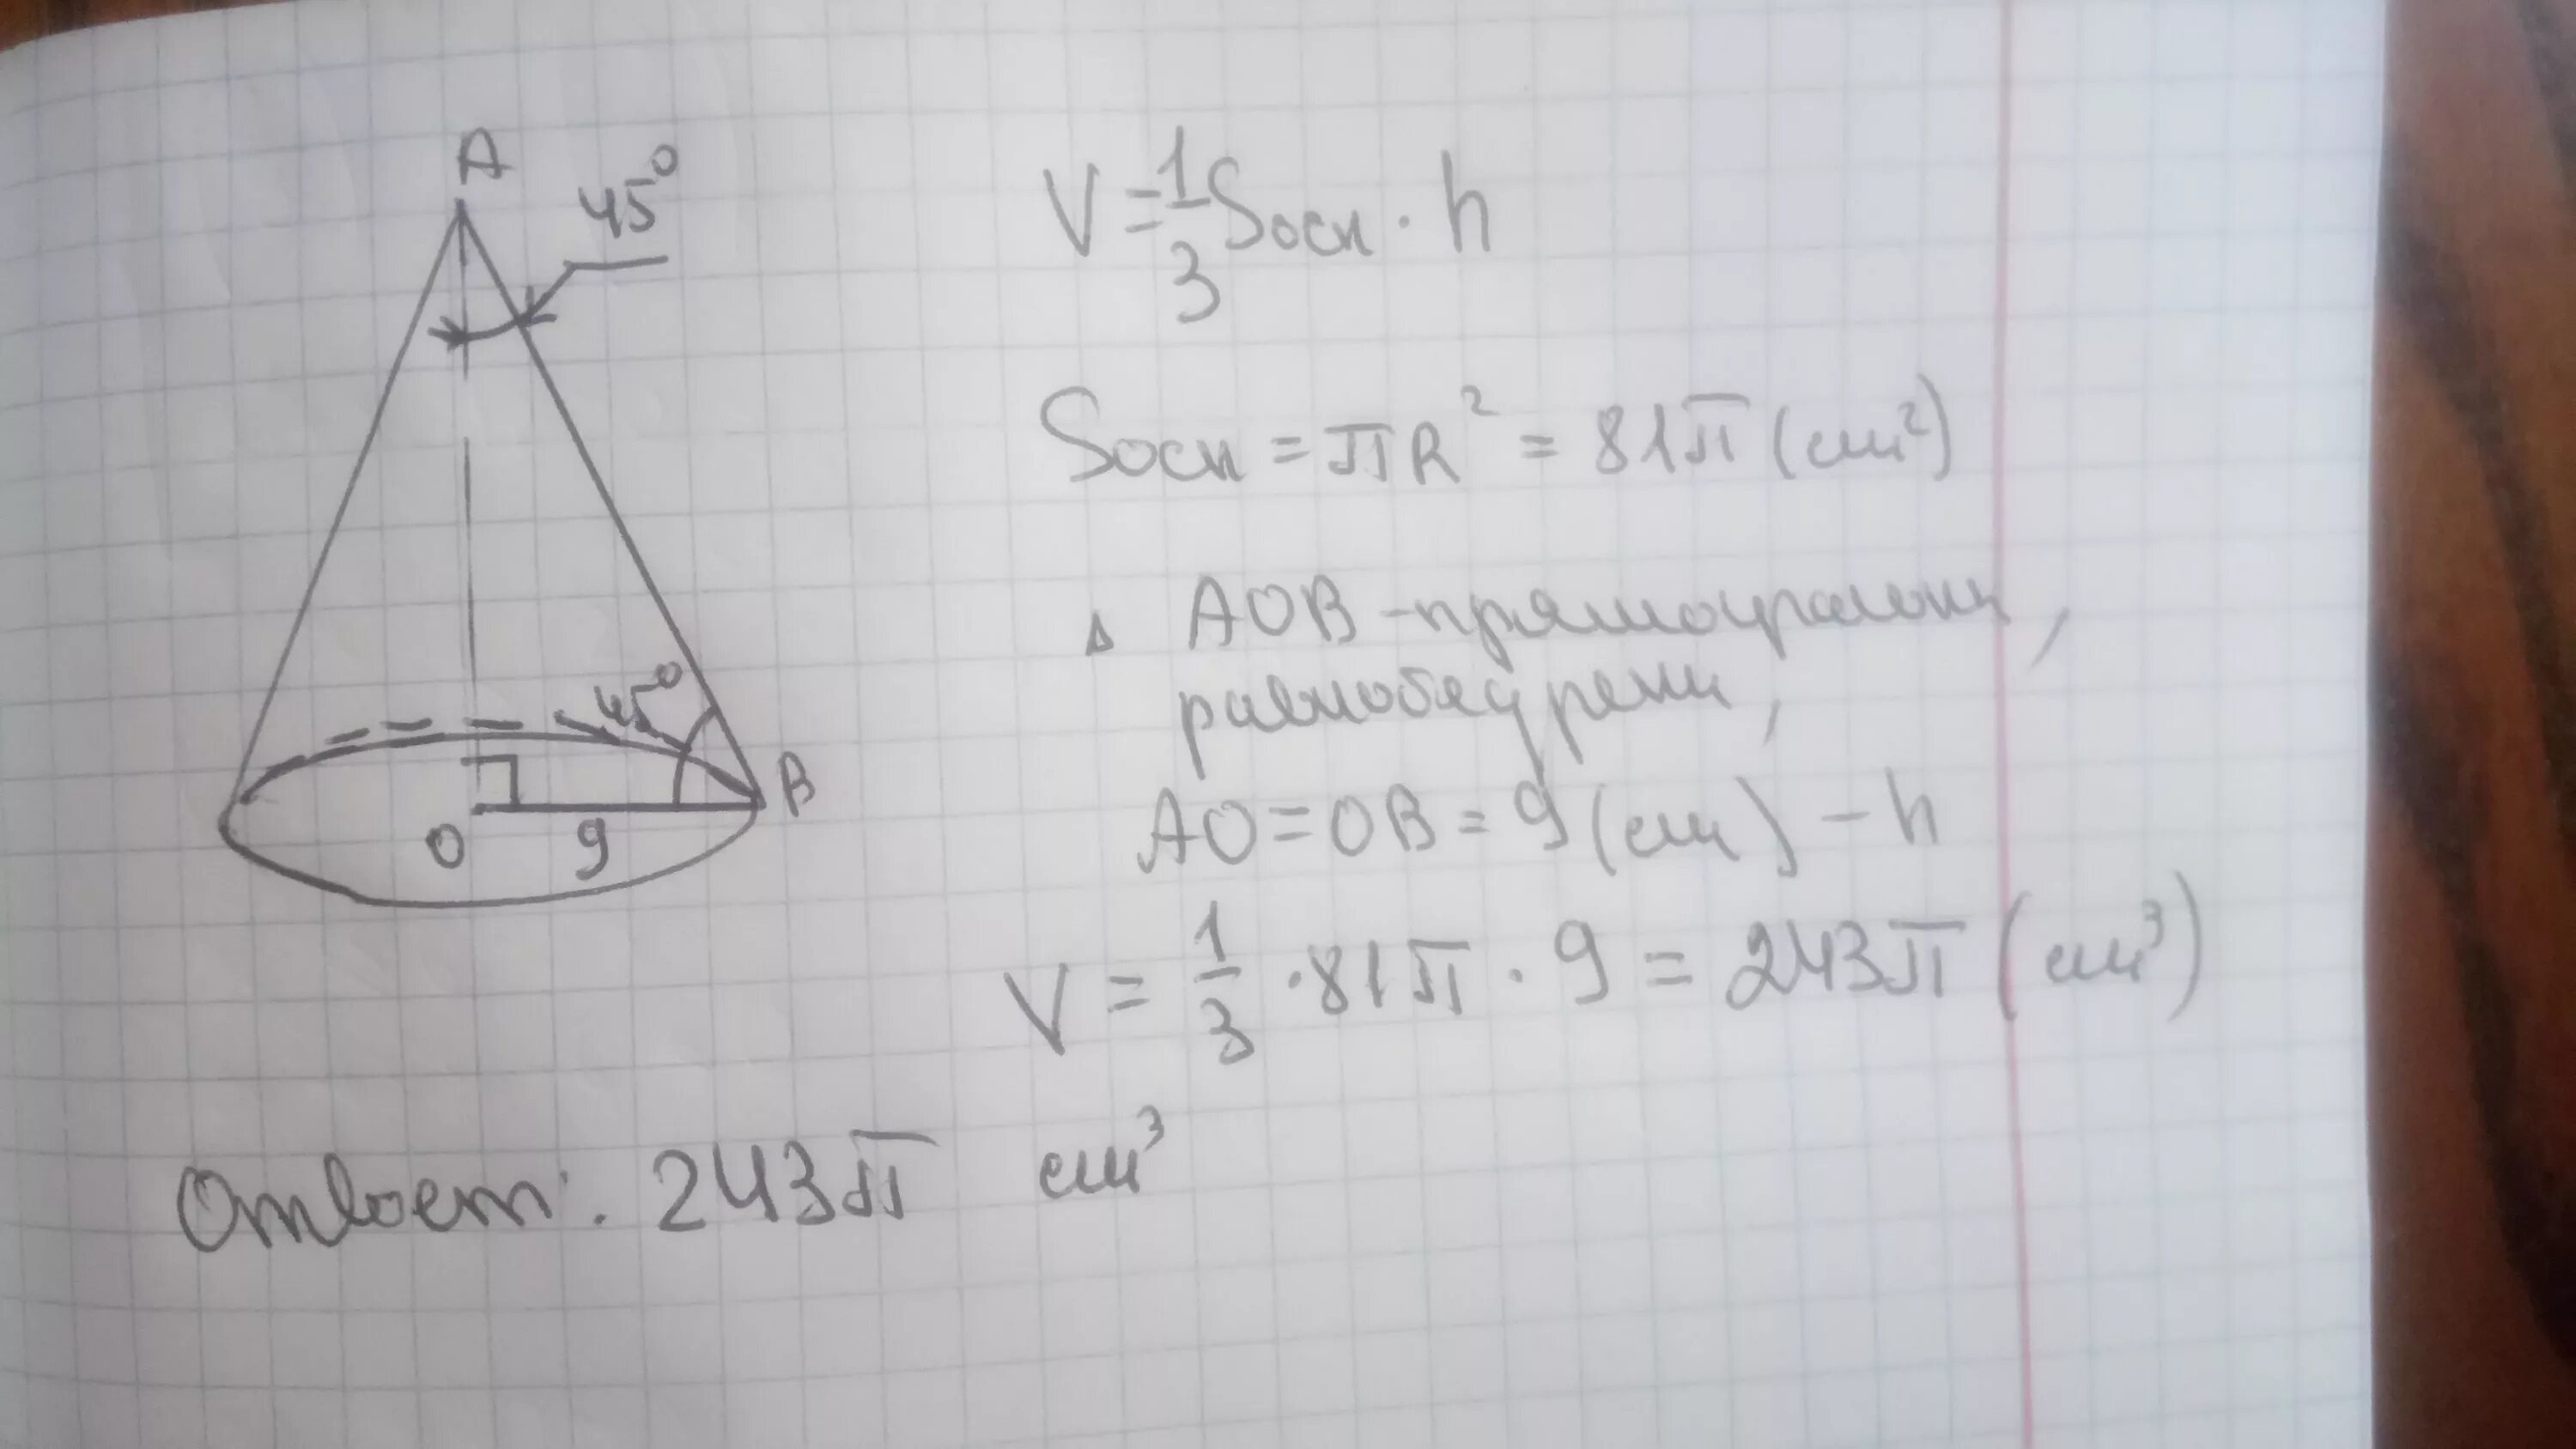 A
45°
45°
B
O
9
V = 1/3 Sосн · h
Sосн = πR² = 81π (см²)
Δ AOB - прямоугольн,
равнобедренн,
AO = OB = 9 (см) - h
V = 1/3 · 81π · 9 = 243π (см³)
Ответ: 243π см³